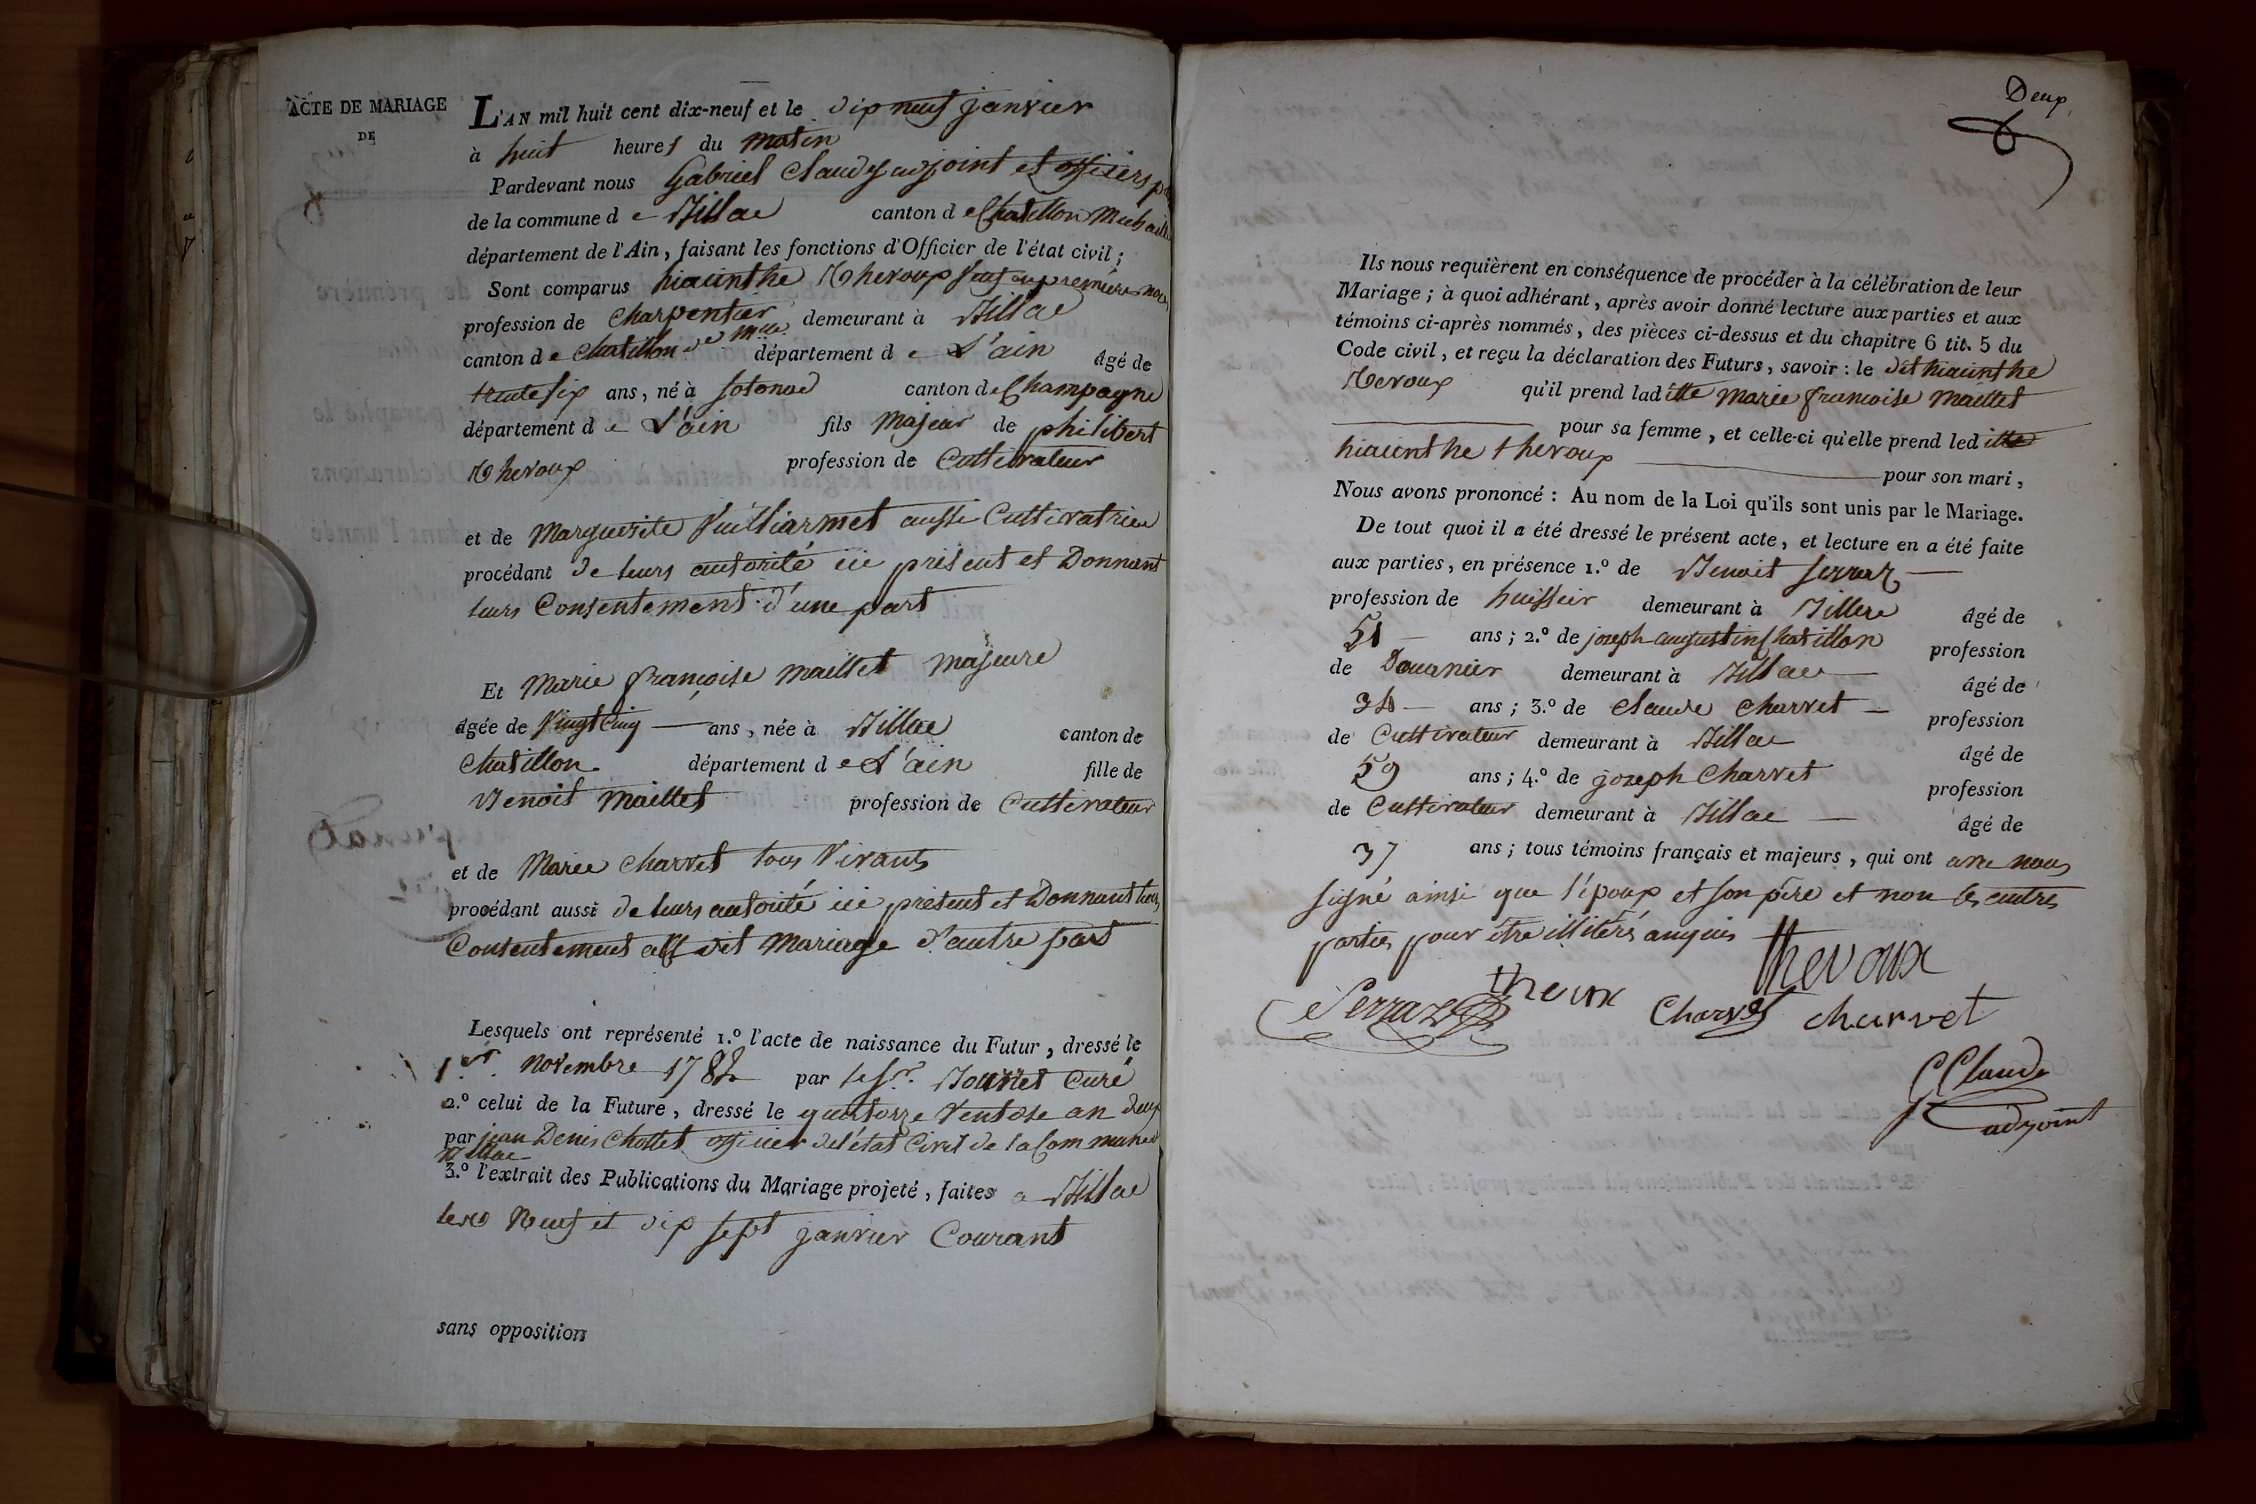 ACTE DE MARIAGE
DE
L'AN mil huit cent dix-neuf et le dix neuf janvier
à huit heures du matin
Pardevant nous Gabriel Claude adjoint et officier
de la commune de Billiac canton de Chatillon Michaille
département de l'Ain, faisant les fonctions d'Officier de l'état civil;
Sont comparus hiacinthe Theroux premiere
profession de Charpentier demeurant à Billiac
canton de Chatillon de Mlle département de L'ain âgé de
trente six ans, né à Sotonod canton de Champagne
département de L'ain fils Majeur de philibert
Theroux profession de Cultivateur
et de Marguerite Vuilliarmet aussi Cultivatrice
procédant de leurs autorité ici présent et Donnant
leurs Consentement d'une part
Et Marie françoise Maillet Majeure
âgée de Vingt Cinq ans, née à Billiac canton de
Chatillon département de L'ain fille de
Benoit Maillet profession de Cultivateur
et de Marie Charvet tous Vivants
procédant aussi de leurs autorité ici présent et Donnant leurs
Consentement dit Mariage d'autre part
Lesquels ont représenté 1.º l'acte de naissance du Futur, dressé le
1er. Novembre 1782 par le Sr. Curé
2.º celui de la Future, dressé le quatorze Ventose an deux
par jean Denis Chollet officier de l'état Civil de la Commune de
Billiac
3.º l'extrait des Publications du Mariage projeté, faites a Billiac
les Neuf et dix sept janvier Courant
sans opposition
Deux
Ils nous requièrent en conséquence de procéder à la célébration de leur
Mariage; à quoi adhérant, après avoir donné lecture aux parties et aux
témoins ci-après nommés, des pièces ci-dessus et du chapitre 6 tit. 5 du
Code civil, et reçu la déclaration des Futurs, savoir: le dit hiacinthe
Theroux qu'il prend laditte Marie françoise Maillet
pour sa femme, et celle-ci qu'elle prend leditte
hiacinthe theroux pour son mari,
Nous avons prononcé: Au nom de la Loi qu'ils sont unis par le Mariage.
De tout quoi il a été dressé le présent acte, et lecture en a été faite
aux parties, en présence 1.º de Benoit Serraz
profession de huissier demeurant à Billiac âgé de
51 ans; 2.º de joseph augustin Chatillon profession
de Douanier demeurant à Billiac âgé de
34 ans; 3.º de Claude Charvet profession
de Cultivateur demeurant à Billiac âgé de
59 ans; 4.º de joseph Charvet profession
de Cultivateur demeurant à Billiac âgé de
37 ans; tous témoins français et majeurs, qui ont avec nous
signé ainsi que l'époux et son père et non les autres
parties pour être illitérés enquis
theroux
Serraz theroux Charvet charvet
G Claude
adjoint